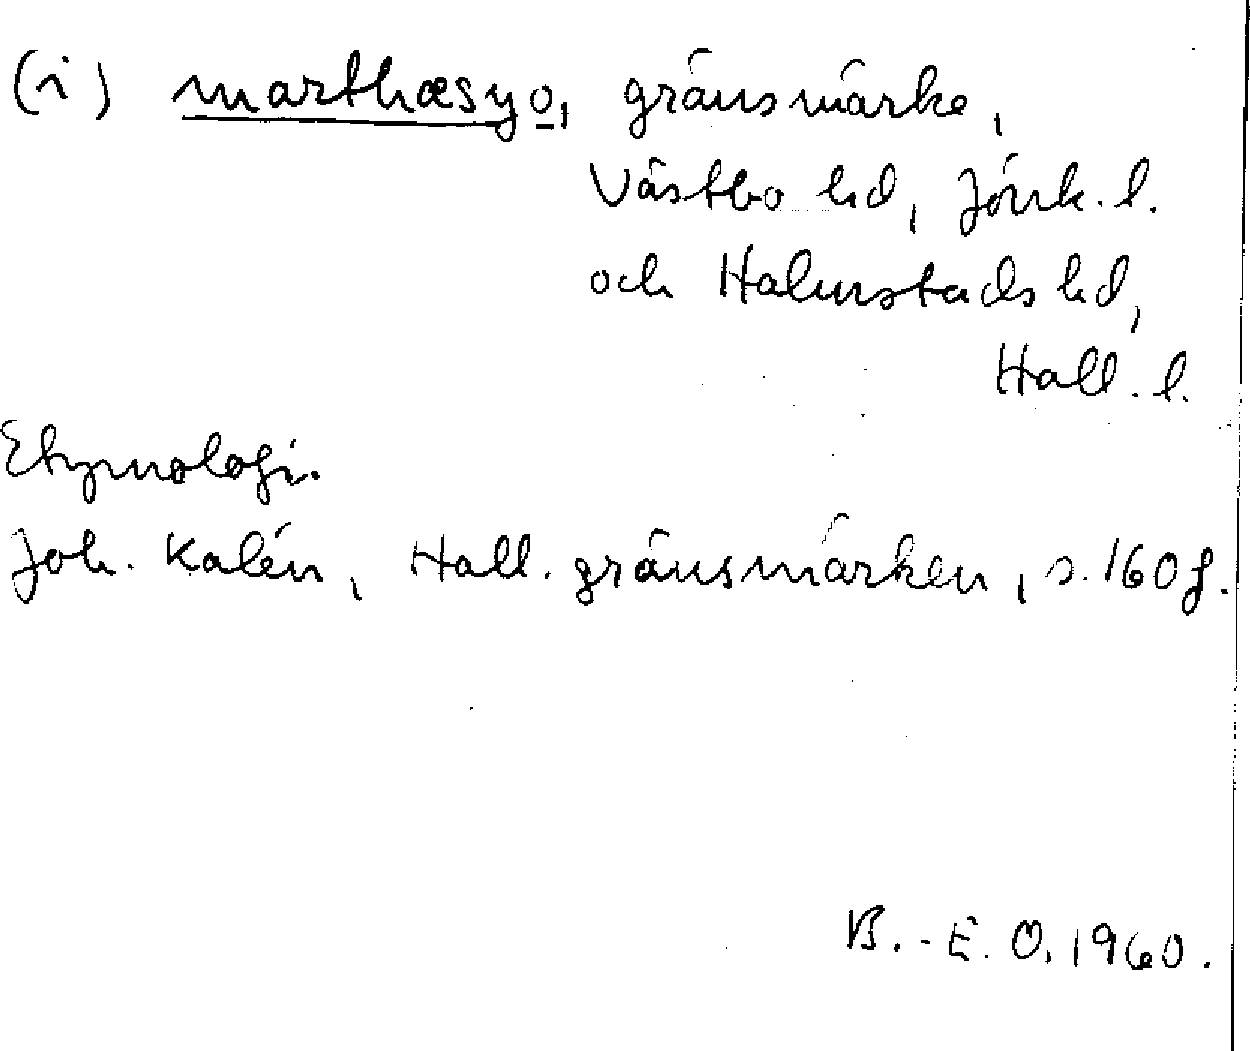 (i) marthæsyo, gränsmärke,
Västbo hd, Jönk. l.
och Halmstads hd,
Hall. l.
Etymologi.
Joh. Kalén, Hall. gränsmärken, s. 160 f.
B.-E. O. 1960.